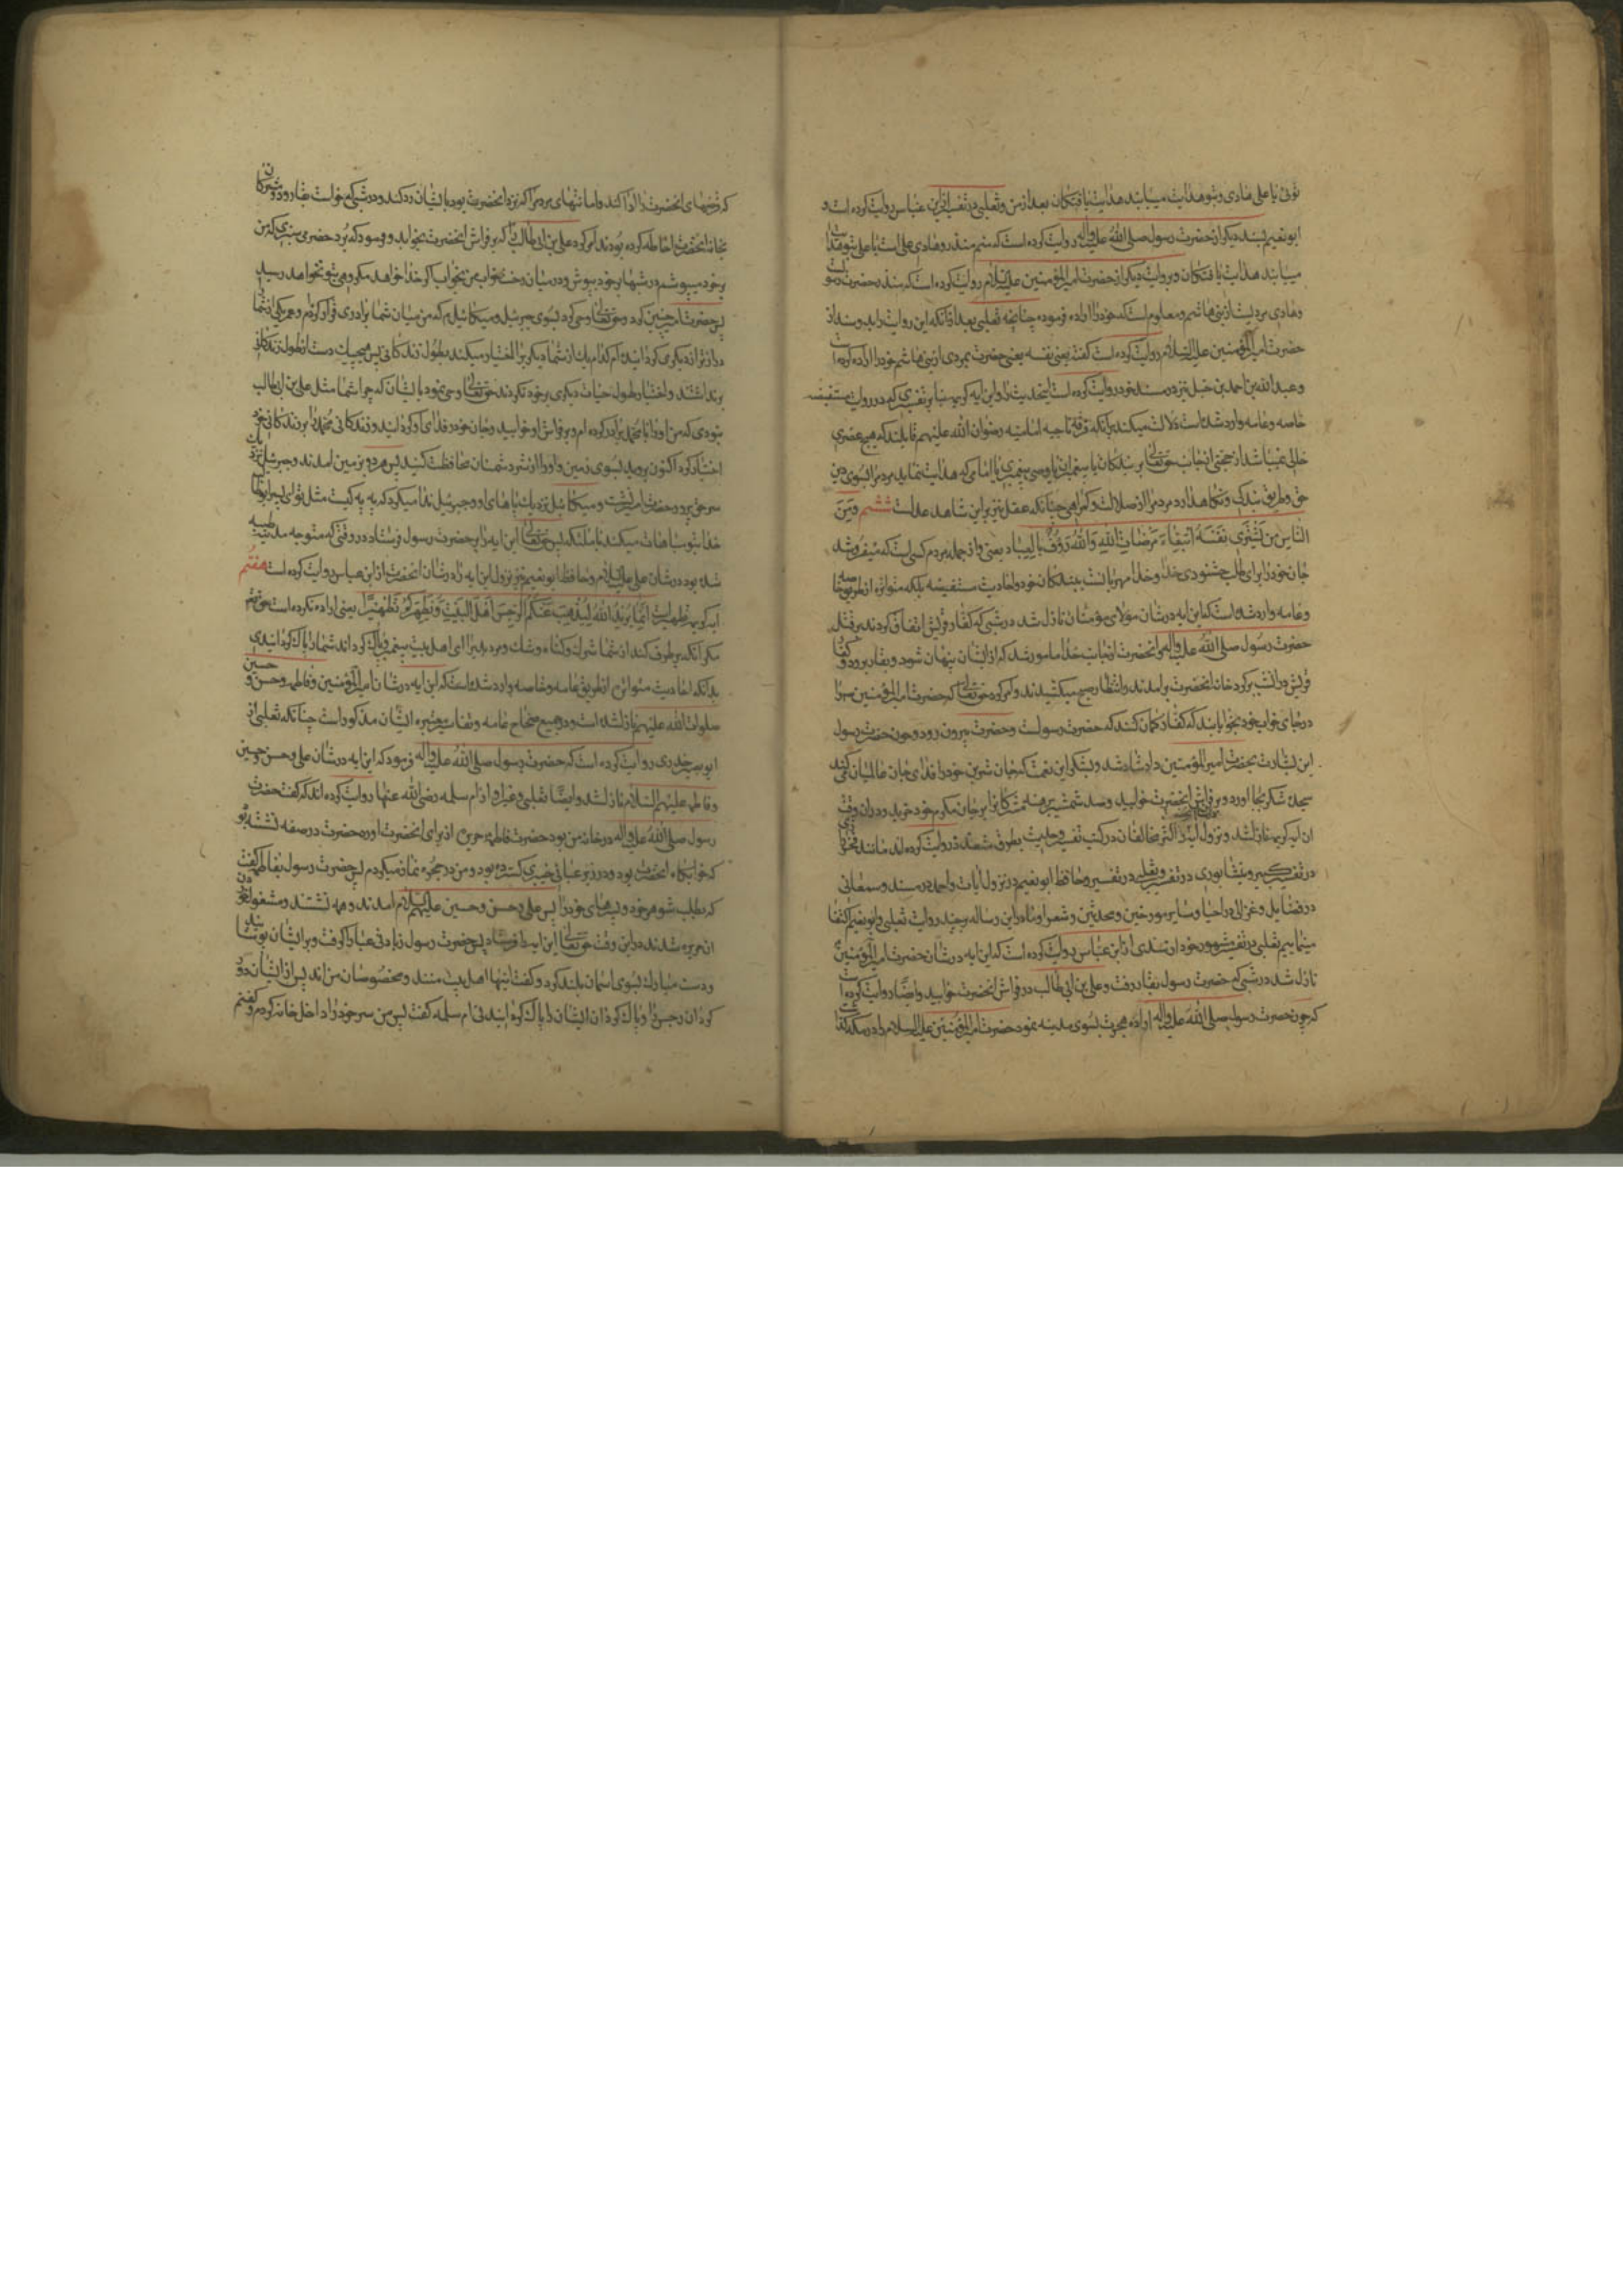 توئی یا علی هادی و بتو هدایت مییابند هدایت یافتکان بعد از من و ثعلبی در تفسیر از ابن عباس روایت کرده است و
ابو نعیم بسند دیکر از حضرت رسول صلی الله علیه و اله روایت کرده است که منم منذر و هادی علی است یا علی بتو هدایت
مییابند هدایت یافتکان و بروایت دیکر از حضرت امیر المؤمنین علیه السلام روایت کرده است که منذر حضرت رسولست
و هادی مردیست از بنی هاشم و معلوم است که خود را اراده فرموده چنانچه ثعلبی بعد از انکه این روایت را بد و سند از
حضرت امیر المؤمنین علیه السلام روایت کرده است کفته یعنی نفسه یعنی حضرت بمردی از بنی هاشم خود را اراده کرده است
و عبد الله بن احمد بن حنبل نیز در مسند خود روایت کرده است اینحدیث را و این ایه کریمه بنا بر تفسیری که در روایت مستفیضه
خاصه و عامه وارد شده است دلالت میکند بر انکه فرقه ناجیه امامیه رضوان الله علیهم قایلند که هیچ عصری
خالی نمیباشد از حجتی از جانب حق تعالی بر بندکان یا پیغمبری یا وصی پیغمبری یا امامی که هدایت نماید مردم را بسوی دین
حق و طریق بندکی و نکاهدارد مردم را از ضلالت و کمراهی چنانکه عقل نیز بر این شاهد عدلست ششم و من
الناس من یشری نفسه ابتغاء مرضات الله و الله رؤف بالعباد یعنی و از جمله مردم کسی است که میفروشد
جان خود را برای طلب خشنودی خدا و خدا مهربانست ببندکان خود و احادیث مستفیضه بلکه متواتره از طریق خاصه
و عامه وارد شده است که این ایه در شان مولای مؤمنان نازل شد در شبی که کفار قریش اتفاق کردند بر قتل
حضرت رسول صلی الله علیه و اله و انحضرت از جانب خدا مامور شد که از ایشان پنهان شود و بغار برود و کفار
قریش در انشب بر کرد خانه انحضرت برامدند و انتظار صبح میکشیدند و امر کرد حق تعالی که حضرت امیر المؤمنین را
در جای خواب خود بخواباند که کفار کمان کنند که حضرت رسولست و حضرت بیرون رود و چون حضرت رسول
این بشارت بحضرت امیر المؤمنین داد شاد شد و بشکر این نعمت که جان شیرین خود را فدای جان عالمیان میکند
سجده شکر بجا اورد و بر فراش انحضرت خوابید و صد شمشیر برهنه مشرکان را بر جان مکرم خود خرید و در ان وقت
ان ایه کریمه نازل شد و نزول ایه را اکثر مخالفان در کتب تفسیر و حدیث بطرق متعدده روایت کرده اند مانند فخر رازی
در تفسیر کبیر و نیشابوری در تفسیر و ثعلبی در تفسیر و حافظ ابو نعیم در نزول ایات و احمد در مسند و سمعانی
در فضایل و غزالی در احیا و سایر مورخین و محدثین و شعرا و ما در این رساله بر چند روایت ثعلبی و ابو نعیم اکتفا
مینماییم ثعلبی در تفسیر مشهور خود از سدی از ابن عباس روایت کرده است که این ایه در شان حضرت امیر المؤمنین
نازل شد در شبی که حضرت رسول بغار رفت و علی بن ابی طالب در فراش انحضرت خوابید و ایضا روایت کرده است
که چون حضرت رسول صلی الله علیه و اله اراده هجرت بسوی مدینه نمود حضرت امیر المؤمنین علیه السلام را در مکه کذاشت
که قرضهای انحضرت را ادا کند و امانتهای مردم را که نزد انحضرت بود بایشان رد کند و در شبی که میخواست بغار رود و مشرکان
بخانه انحضرت احاطه کرده بودند امر کرد علی بن ابی طالب را که بر فراش انحضرت بخوابد و فرمود که برد حضرمی سبزی که من
بر خود میپوشم در شبها بر خود بپوش و در میان رخت خواب من بخواب اکر خدا خواهد مکروهی بتو نخواهد رسید
پس حضرت امیر چنین کرد و حق تعالی وحی کرد بسوی جبرئیل و میکائیل که من میان شما برادری قرار کردم و عمر یکی از شما را
دراز تر از دیکری کردانیدم کدام یک از شما دیکری را اختیار میکنید بطول زندکانی پس هیچیک دست از طول زندکانی
برنداشتند و اختیار طول حیات دیکری بر خود نکردند حق تعالی وحی نمود بایشان که چرا شما مثل علی بن ابی طالب
نبودی که من او را با محمد برادر کرده ام و بر فراش او خوابید و جان خود را فدای او کردانید و زندکانی محمد را بر زندکانی خود
اختیار کرد اکنون بروید بسوی زمین و او را از شر دشمنان محافظت کنید پس هر دو بزمین امدند و جبرئیل نزدیک
سر حق پرور حضرت امیر نشست و میکائیل نزدیک پاهای او و جبرئیل ندا میکرد که به به کیست مثل تو ای پسر ابو طالب
خدا بتو مباهات میکند با ملئکه پس حق تعالی این ایه را بر حضرت رسول فرستاد در وقتی که متوجه مدینه طیبه
شده بود در شان علی علیه السلام و حافظ ابو نعیم نیز نزول این ایه را در شان انحضرت از ابن عباس روایت کرده است هفتم
ایه کریمه تطهیر است انما یرید الله لیذهب عنکم الرجس اهل البیت و یطهرکم تطهیرا یعنی اراده نکرده است حق تعالی
مکر انکه برطرف کند از شما شرک و کناه و شک و هر بد را ای اهل بیت پیغمبر و پاک کرداند شما را پاک کردانیدنی
بدانکه احادیث متواتره از طریق عامه و خاصه وارد شده است که این ایه در شان امیر المؤمنین و فاطمه و حسن و حسین
صلوات الله علیهم نازل شده است و در جمیع صحاح عامه و تفاسیر معتبره ایشان مذکور است چنانکه ثعلبی از
ابو سعید خدری روایت کرده است که حضرت رسول صلی الله علیه و اله فرمود که این ایه در شان علی و حسن و حسین
و فاطمه علیهم السلام نازل شد و ایضا ثعلبی و غیر او از ام سلمه رضی الله عنها روایت کرده اند که کفت حضرت
رسول صلی الله علیه و اله در خانه من بود حضرت فاطمه حریره از برای انحضرت اورد حضرت در صفه نشسته بود
که خوابکاه انحضرت بود و در زیر عبائی خیبری کسترده بود و من در حجره نماز میکردم پس حضرت رسول بفاطمه کفت
که بطلب شوهر خود و پسرهای خود را پس علی و حسن و حسین علیهم السلام امدند و همه نشستند و مشغول خوردن
ان حریره شدند در این وقت حق تعالی این ایه را فرستاد پس حضرت رسول زیادتی عبا را کرفت و بر ایشان پوشانید
و دست مبارک بسوی اسمان بلند کرد و کفت اینها اهل بیت منند و مخصوصان من اند پس از ایشان دور
کردان رجس را و پاک کردان ایشان را پاک کردانیدنی ام سلمه کفت پس من سر خود را داخل خانه کردم و کفتم